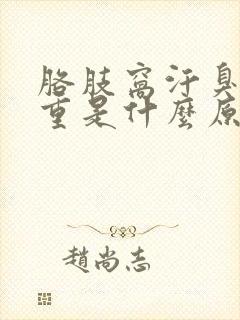 胳肢窩汗臭
重是什麼原
趙尚志